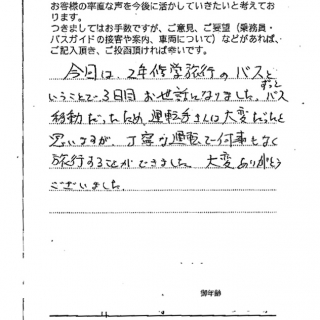 お客様の率直な声を今後に活かしていきたいと考えてお
ります。
つきましてはお手数ですが、ご意見、ご要望（乗務員・
バスガイドの接客や案内、車両について）などがあれば、
ご記入頂き、ご投函頂ければ幸いです。
今日は、2年修学旅行のバスと
いうことで3日間お世話になりました。ずっとバス
移動だったため運転手さんは大変だったと
思いますが、丁寧な運転で何事もなく
旅行することができました。大変ありがとう
ございました。
御年齢